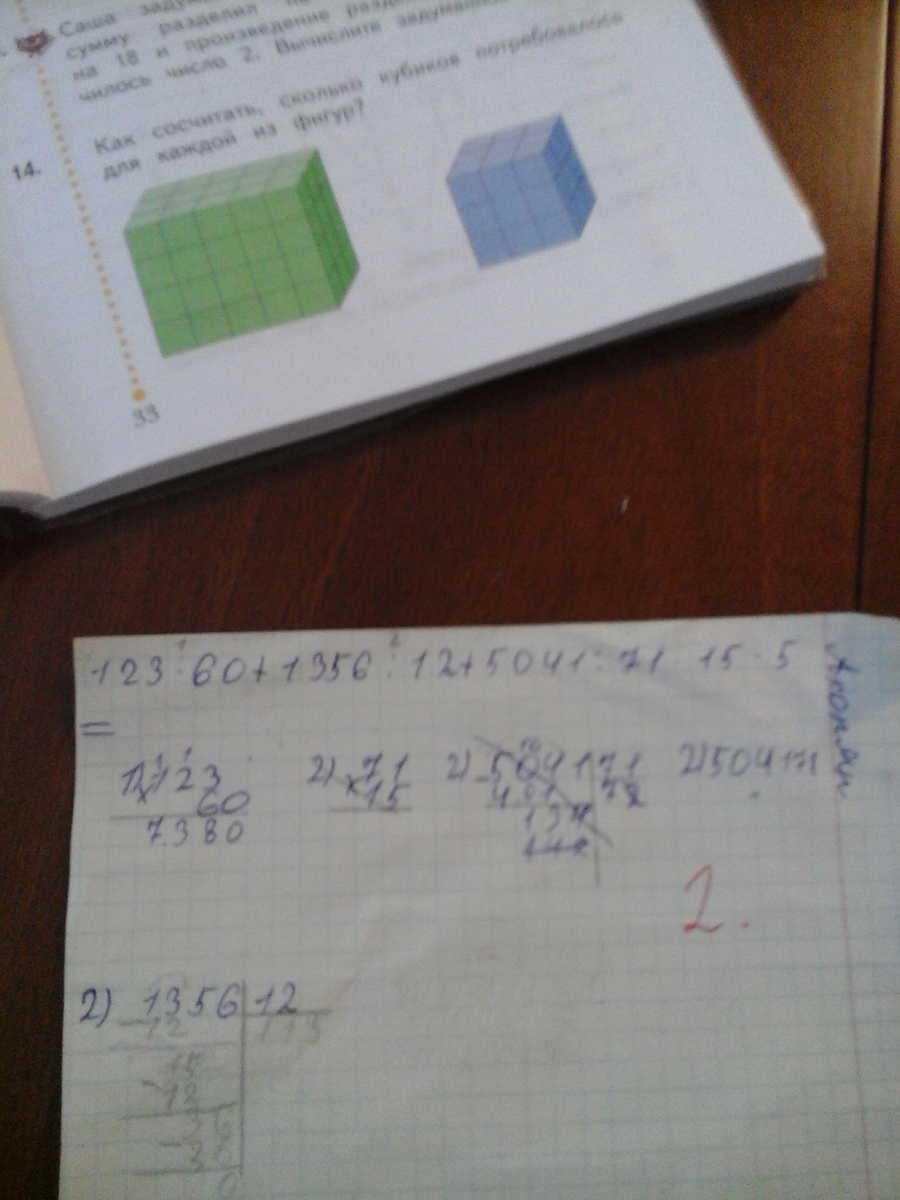 Саша
сумму разделил
на 18 и произведение
чилось число 2. Вычислите
14. Как сосчитать, сколько кубиков потребовалось
для каждой из фигур?
33
123·60+1356:12+5041:71 15·5
=
1) 123
60
7380
2) 71
15
2) 5041 71
2) 504171
2.
2) 1356 12
12 113
15
12
36
36
0